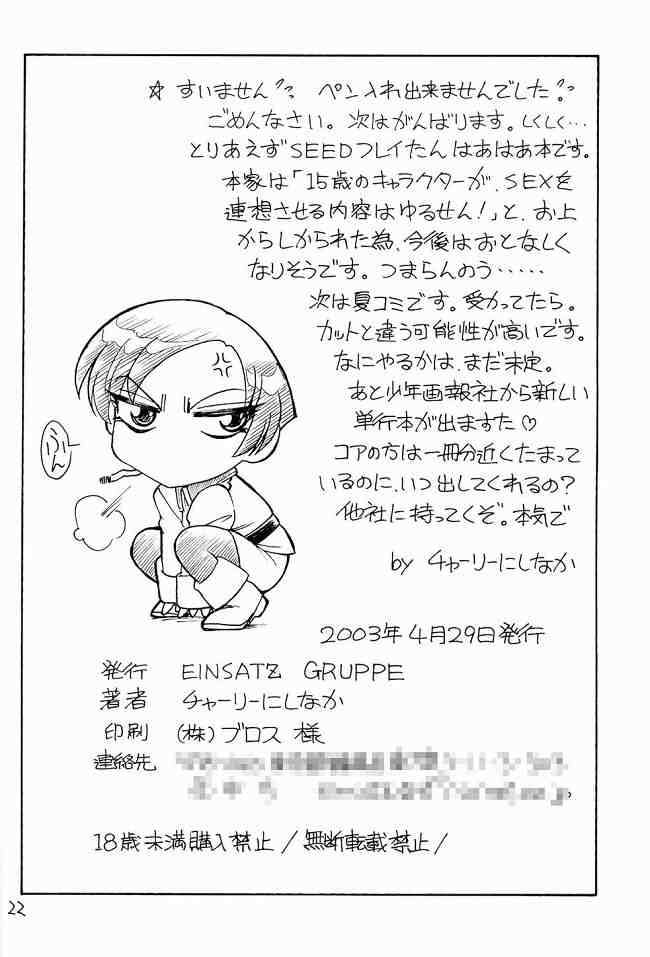 ☆ すいません ペン入れ出来ませんでした
ごめんなさい。次はがんばります。しくしく…
とりあえずSEEDフレイたんはあはあ本です。
本家は「15歳のキャラクターが、SEXを
連想させる内容はゆるせん！」と、お上
からしかられた為、今後はおとなしく
なりそうです。つまらんのう‥‥‥
次は夏コミです。受かってたら。
カットと違う可能性が高いです。
なにやるかは、まだ未定。
あと少年画報社から新しい
単行本が出ますた♡
コアの方は一冊分近くたまって
いるのに、いつ出してくれるの？
他社に持ってくぞ。本気で
by チャーリーにしなか
ふーん
2003年4月29日発行
発行 EINSATZ GRUPPE
著者 チャーリーにしなか
印刷 (株)ブロス 様
連絡先
18歳未満購入禁止/無断転載禁止/
22